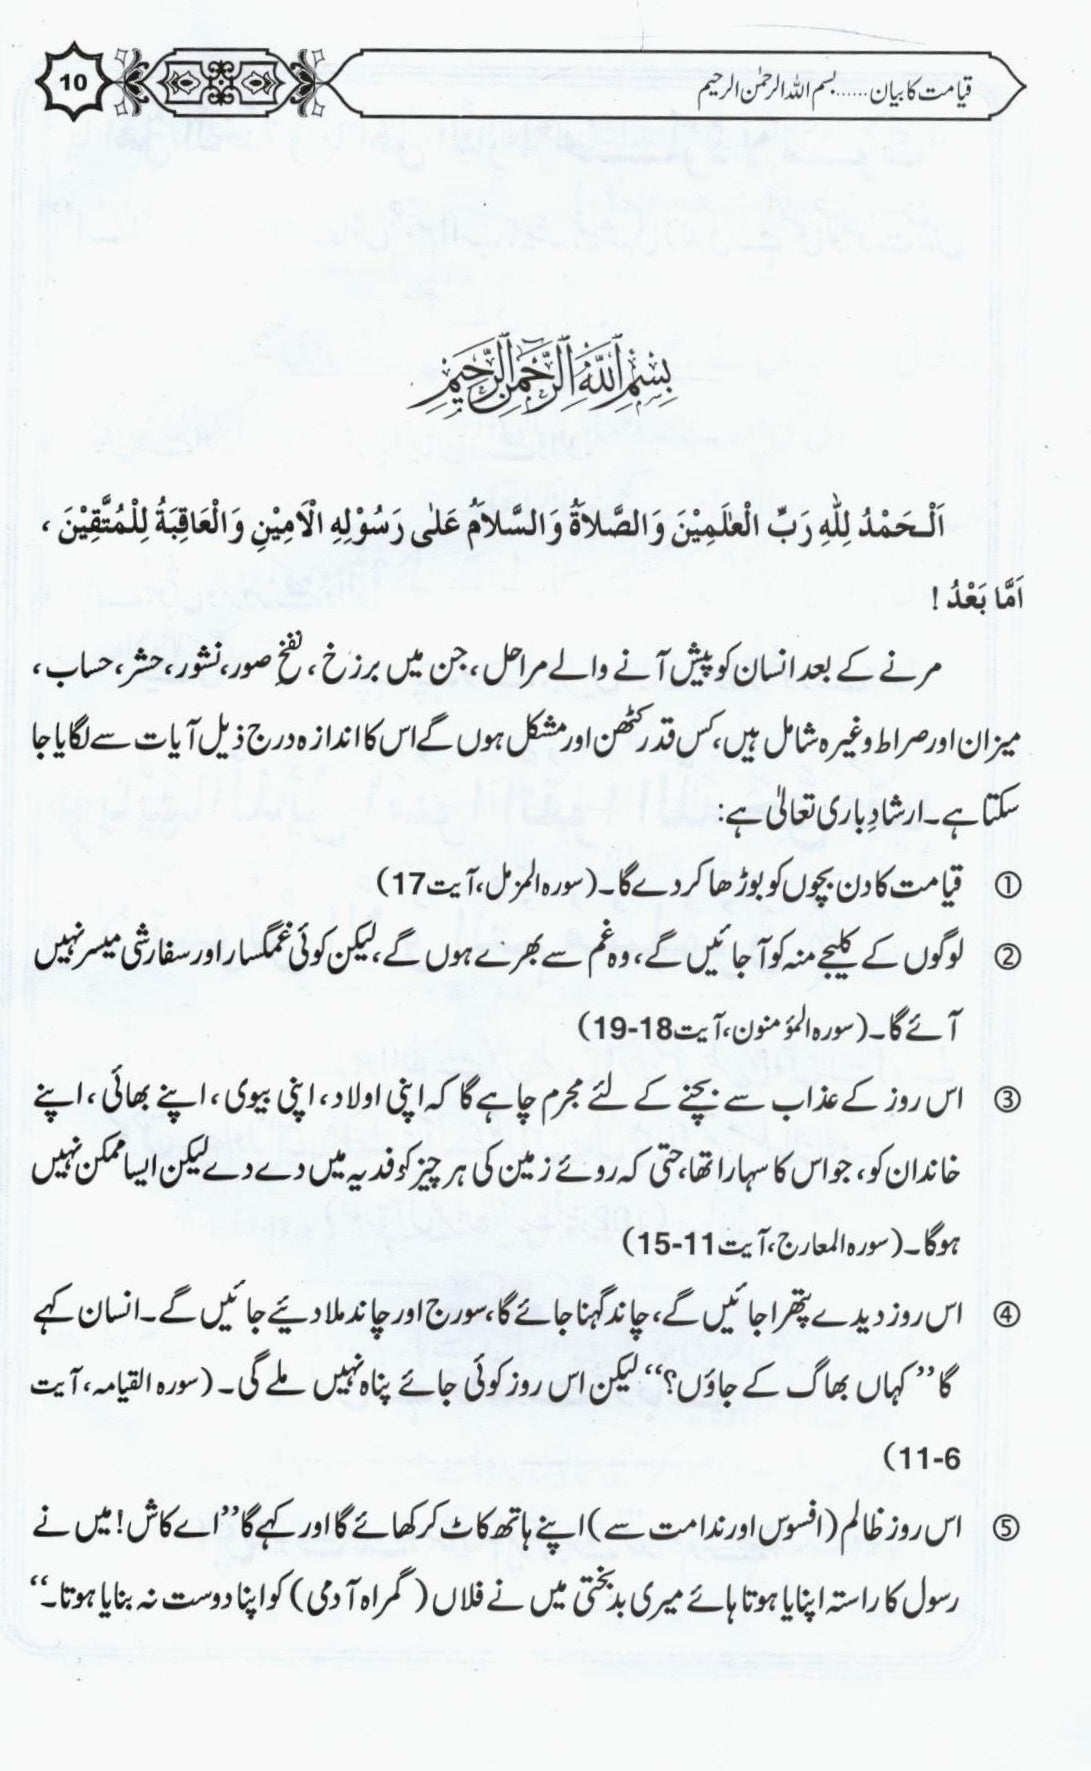 قیامت کا بیان......بسم اللہ الرحمٰن الرحیم
10
بِسْمِ اللّٰهِ الرَّحْمٰنِ الرَّحِيْمِ
اَلْـحَمْدُ لِلّٰهِ رَبِّ الْعٰلَمِيْنَ وَالصَّلاَةُ وَالسَّلاَمُ عَلٰى رَسُوْلِهِ الْاَمِيْنِ وَالْعَاقِبَةُ لِلْمُتَّقِيْنَ ،
اَمَّا بَعْدُ !
مرنے کے بعد انسان کو پیش آنے والے مراحل، جن میں برزخ، نفخِ صور، نشور، حشر، حساب،
میزان اور صراط وغیرہ شامل ہیں، کس قدر کٹھن اور مشکل ہوں گے اس کا اندازہ درج ذیل آیات سے لگایا جا
سکتا ہے۔ ارشادِ باری تعالیٰ ہے:
① قیامت کا دن بچوں کو بوڑھا کر دے گا۔ (سورہ المزمل، آیت 17)
② لوگوں کے کلیجے منہ کو آ جائیں گے، وہ غم سے بھرے ہوں گے، لیکن کوئی غمگسار اور سفارشی میسر نہیں
آئے گا۔ (سورہ المؤمنون، آیت 18-19)
③ اس روز کے عذاب سے بچنے کے لئے مجرم چاہے گا کہ اپنی اولاد، اپنی بیوی، اپنے بھائی، اپنے
خاندان کو، جو اس کا سہارا تھا، حتی کہ روئے زمین کی ہر چیز کو فدیہ میں دے دے لیکن ایسا ممکن نہیں
ہوگا۔ (سورہ المعارج، آیت 11-15)
④ اس روز دیدے پتھرا جائیں گے، چاند گہنا جائے گا، سورج اور چاند ملا دیئے جائیں گے۔ انسان کہے
گا ’’کہاں بھاگ کے جاؤں؟‘‘ لیکن اس روز کوئی جائے پناہ نہیں ملے گی۔ (سورہ القیامہ، آیت
6-11)
⑤ اس روز ظالم (افسوس اور ندامت سے) اپنے ہاتھ کاٹ کر کھائے گا اور کہے گا ’’اے کاش! میں نے
رسول کا راستہ اپنایا ہوتا ہائے میری بدبختی میں نے فلاں (گمراہ آدمی) کو اپنا دوست نہ بنایا ہوتا۔‘‘